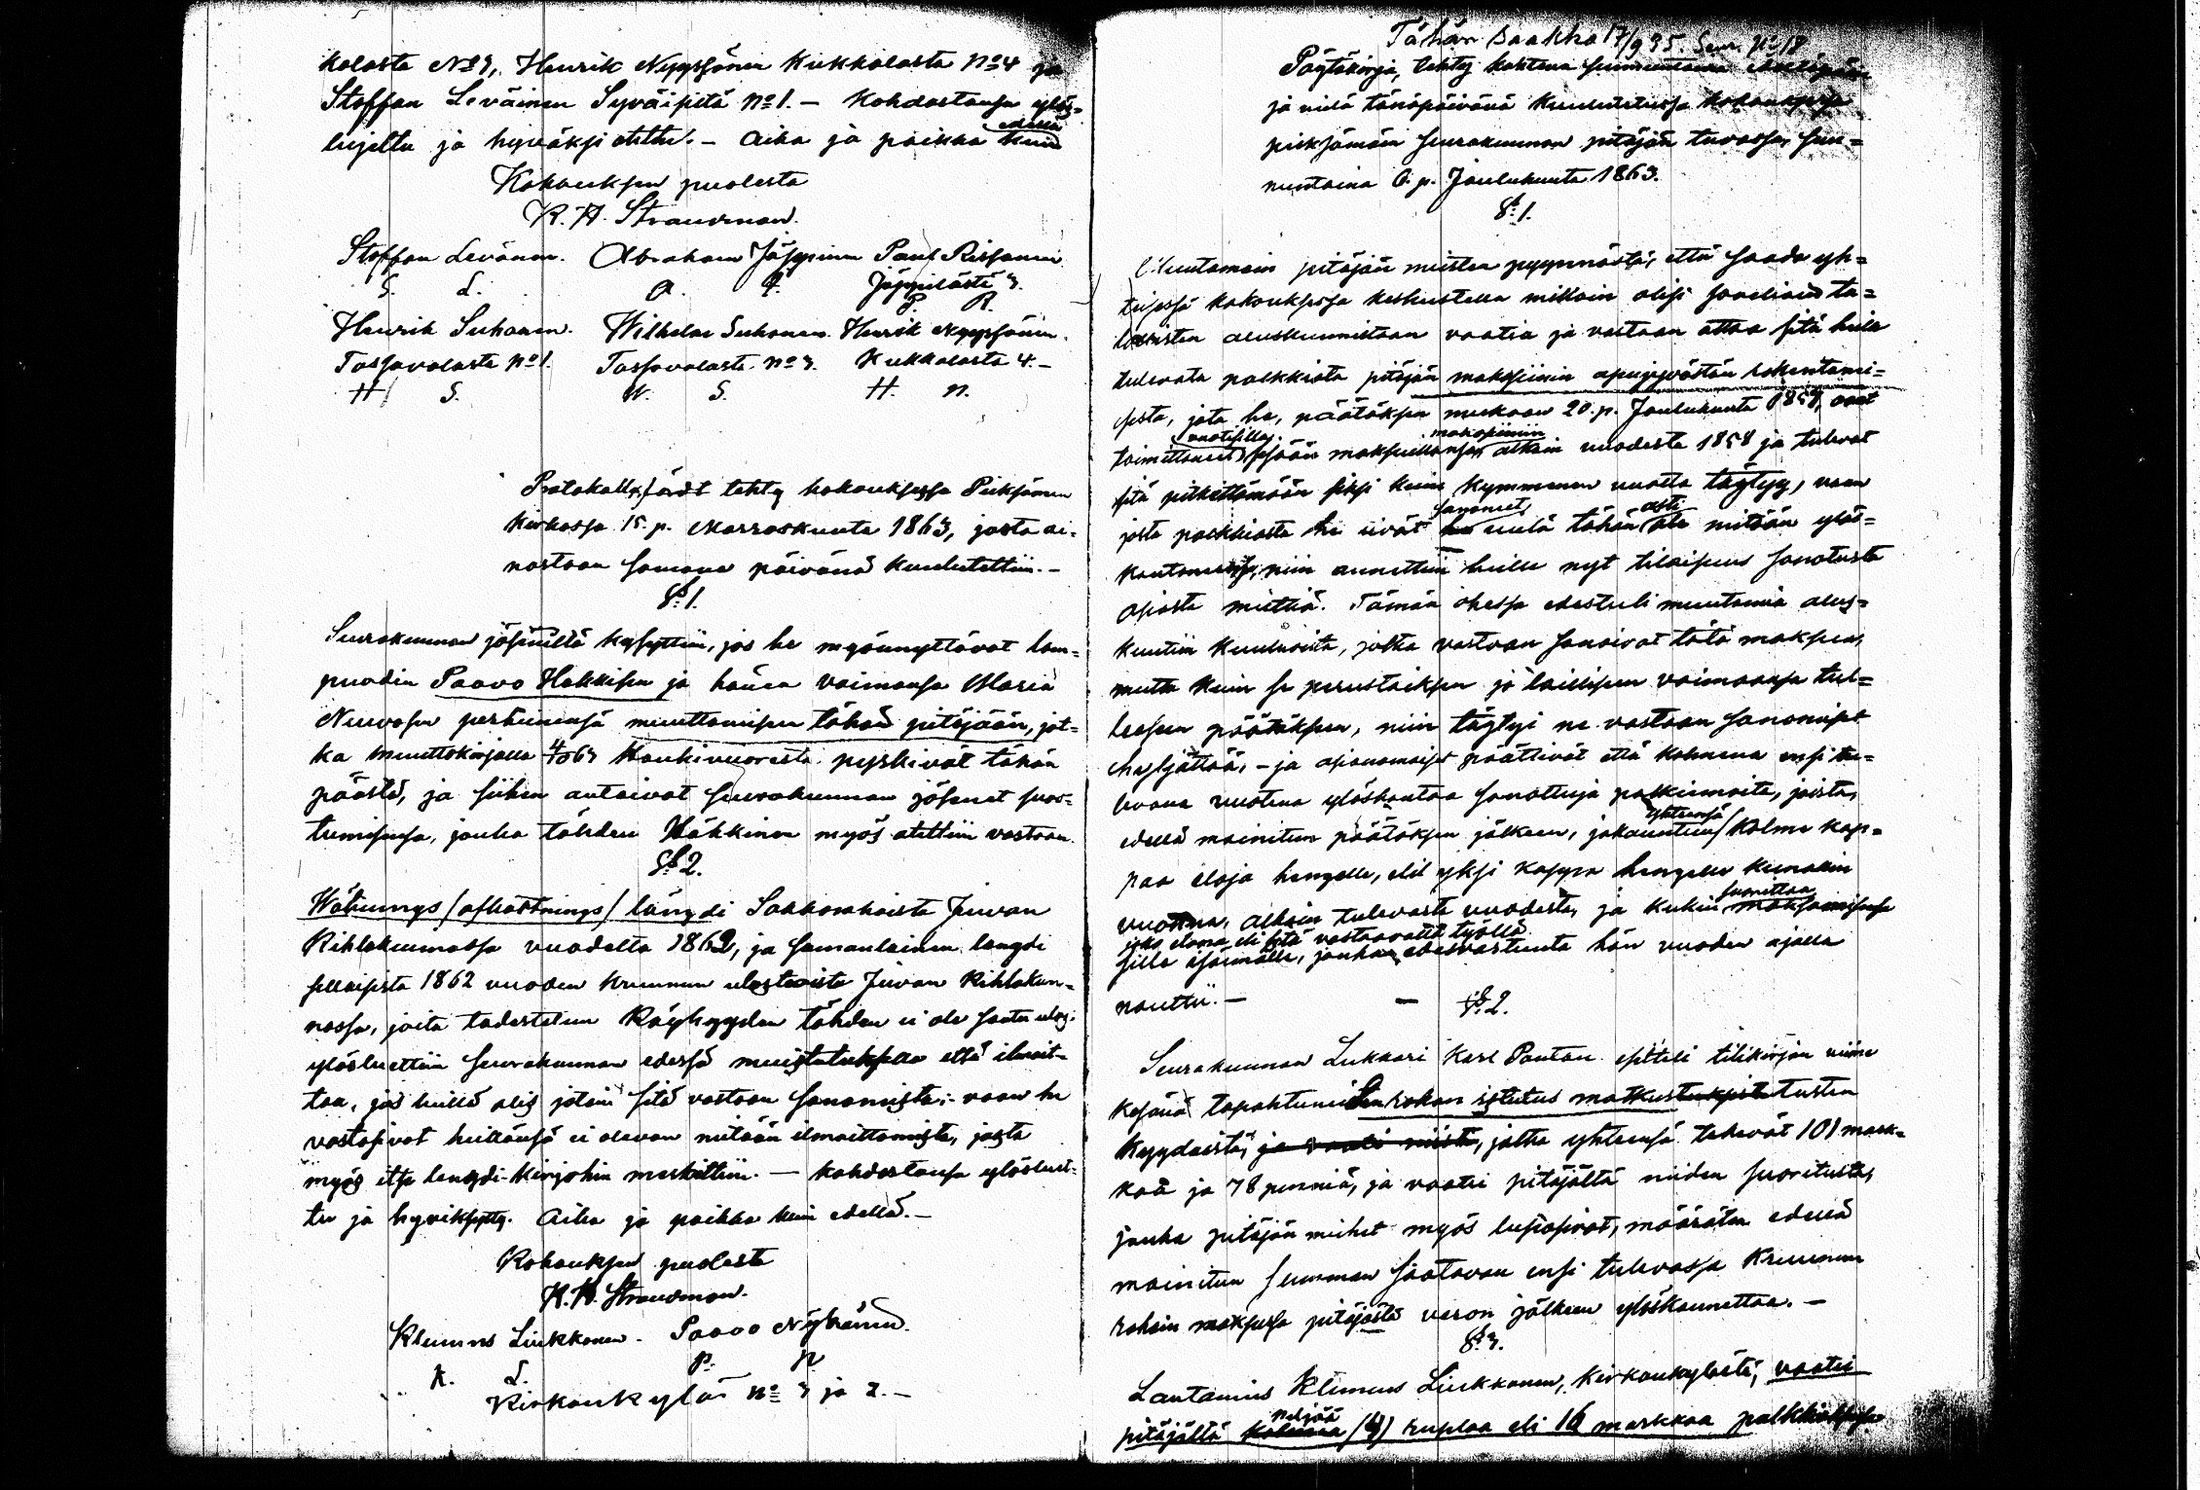 kolasta No 3, Henrik Nyyssönen Kukkolasta No 4 ja
Staffan Leväinen Syväisistä No 1. – Kohdastansa ylös=
lujettu ja hyväksi otettu. – Aika ja paikka kuin edellä
Kokouksen puolesta
K. H. Strandman.
Staffan Levänen. Abraham Jäppinen Paul Rissanen
Jäppilästä 3.
S. L. A. J. P. R.
Henrik Suhonen. Wilhelm Suhonen. Henrik Nyyssönen.
Tossavalasta No 1. Tossavalasta No 3. Kukkolasta 4. –
H S. W. S. H. N.
Protokolls/ärdt tehty kokouksessa Pieksämän
Kirkossa 15. p. Marraskuuta 1863, josta ai=
nastaan samana päivänä kuulutettiin. –
§ 1.
Seurakunnan jäseniltä kysyttiin, jos he myönnyttävät lam=
puodin Paavo Hakkisen ja hänen vaimonsa Maria
Nuvosen perheinensä muuttamisen tähän pitäjään, jot=
ka muuttokirjalla 4/0 63 Haukivuoresta pyrkivät tähän
päästä, ja siihen antoivat seurakunnan jäsenet suos=
tumisensa, jonka tähden Häkkinen myös otettiin vastaan.
§ 2.
Wälnings/afkortnings/längdi Sakkorahoista Juvan
Kihlakunnassa vuodelta 1862, ja samanlainen längdi
sellaisista 1862 vuoden kruunun ulosteoista Juvan Kihlakun=
nassa, joita todistetun köyhyyden tähden ei ole saatu ulos,
ylösluettiin seurakunnan edessä muistutuksella että ilmoit=
taa, jos heillä olis jotain sitä vastaan sanomista; – vaan he
vastasivat heillänsä ei olevan mitään ilmoittamista, josta
myös itse längdi-kirjohin merkittiin. – Kohdastansa ylösluet=
tu ja hyviksytty. Aika ja paikka kuin edellä. –
Kokouksen puolesta
K. H. Strandman.
Klemens Liukkonen. Paavo Nykänen.
K. L. P. N.
Kirkonkylä No 3 ja 2. –
Tähän saakka 17/9 35. Seur. No 18
Pöytäkirja, tehty kahtena sunnuntaina
ja vielä tänäpäivänä kuulutetussa kokouksessa
pieksämän seurakunnan pitäjän tuvassa, sun=
nuntaina 6. p. Joulukuuta 1863.
§ 1.
Muutamain pitäjän miesten pyynnöstä, että saada yh=
teisessä kokouksessa keskustella milloin olisi soveliain ta=
lollisten aluskunniltaan vaatia ja vastaan ottaa sitä heille
tulevata palkkiota pitäjän makasiinin apujyvästön rakentami=
sesta, jota he, päätöksen mukaan 20. p. Joulukuuta 1857, ovat
toimittaneet vuotisilla sisään maksuillansa makasiiniin alkain vuodesta 1858 ja tulevat
sitä pitkittämään siksi kuin kymmenen vuotta täytyy, vaan
josta palkkiosta he eivät sanoneet vielä tähän asti mitään ylös=
kantaneensa, niin annettiin heille nyt tilaisuus sanotusta
asiasta miettiä. Tämän ohessa edestuli muutamia alus=
kuntiin kuuluvia, jotka vastaan sanoivat tätä maksua,
mutta kuin se perustaiksen jo lailliseen voimaansa tul=
leeseen päätöksen, niin täytyi ne vastaan sanomiset
hyljättää, – ja asianomaiset päättivät että kolmena ensi tu=
levana vuotena ylöskantaa sanottuja palkkioita, joista,
edellä mainitun päätöksen jälkeen, jokaiseen yhteensä kolme kap=
paa eloja hengelle, eli yksi kappa hengelle kunakin
vuotena, alkain tulevasta vuodesta, ja kukin suorittaa maksamisensa
joko elossa eli sitä vastaavalla työllä
sille isännälle, jonka edesvastausta hän vuoden ajalla
nauttii. – – § 2.
Seurakunnan Lukkari Karl Pantan esitteli tilikirjan viime
kesänä tapahtuneista rokon istutus matkustuksista tusten
kyydeistä, ja vaati niistä, jotka yhteensä tekevät 101 mark=
kaa ja 78 penniä, ja vaati pitäjältä niiden suoritusta,
jonka pitäjän miehet myös lupasivat, määräten edellä
mainitun summan saatavan ensi tulevassa kruunun
rahain maksussa pitäjästä veron jälkeen ylöskannettaa. –
§ 3.
Lautamies Klemens Liukkonen, Kirkonkylästä, vaati
pitäjältä kolmea neljää /4/ ruplaa eli 16 markkaa palkkioksensa